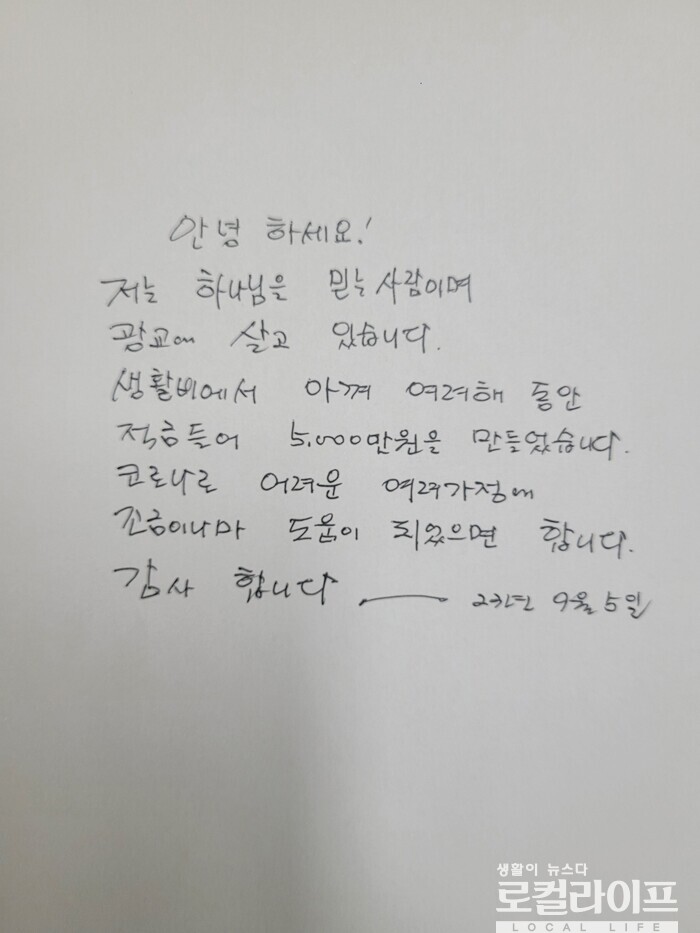 안녕 하세요!
저는 하나님을 믿는 사람이며
광교에 살고 있습니다.
생활비에서 아껴 여러해 동안
적금들어 5,000만원을 만들었습니다.
코로나로 어려운 여러가정에
조금이나마 도움이 되었으면 합니다.
감사 합니다 23년 9월 5일
생활이 뉴스다
로컬라이프
LOCAL LIFE